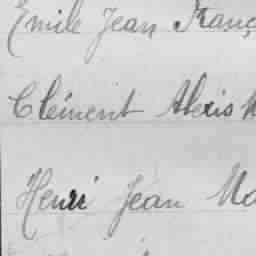 Emile Jean Franç
Clément Alexis
Henri Jean Ma